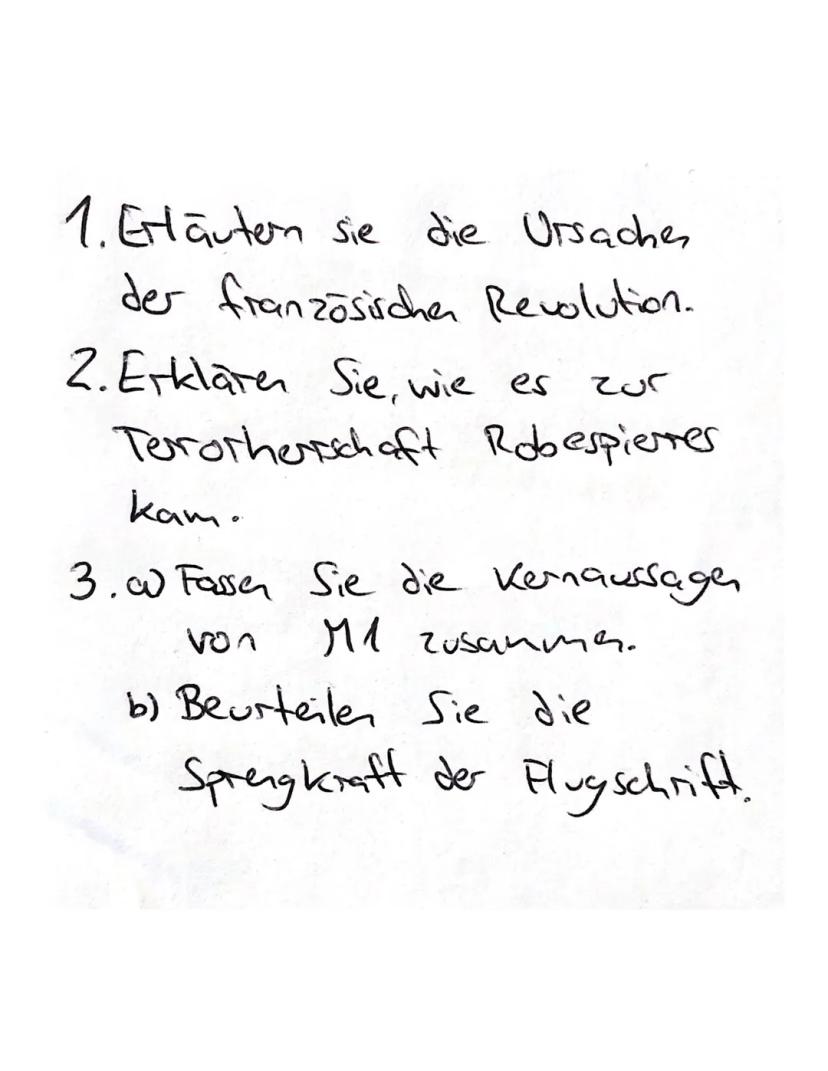 1. Erläutern sie die Ursachen
der französischen Revolution.
2. Erklären Sie, wie es zur
Terrorherrschaft Robespierres
kam.
3. a) Fassen Sie die Kernaussagen
von M1 zusammen.
b) Beurteilen Sie die
Sprengkraft der Flugschrift.